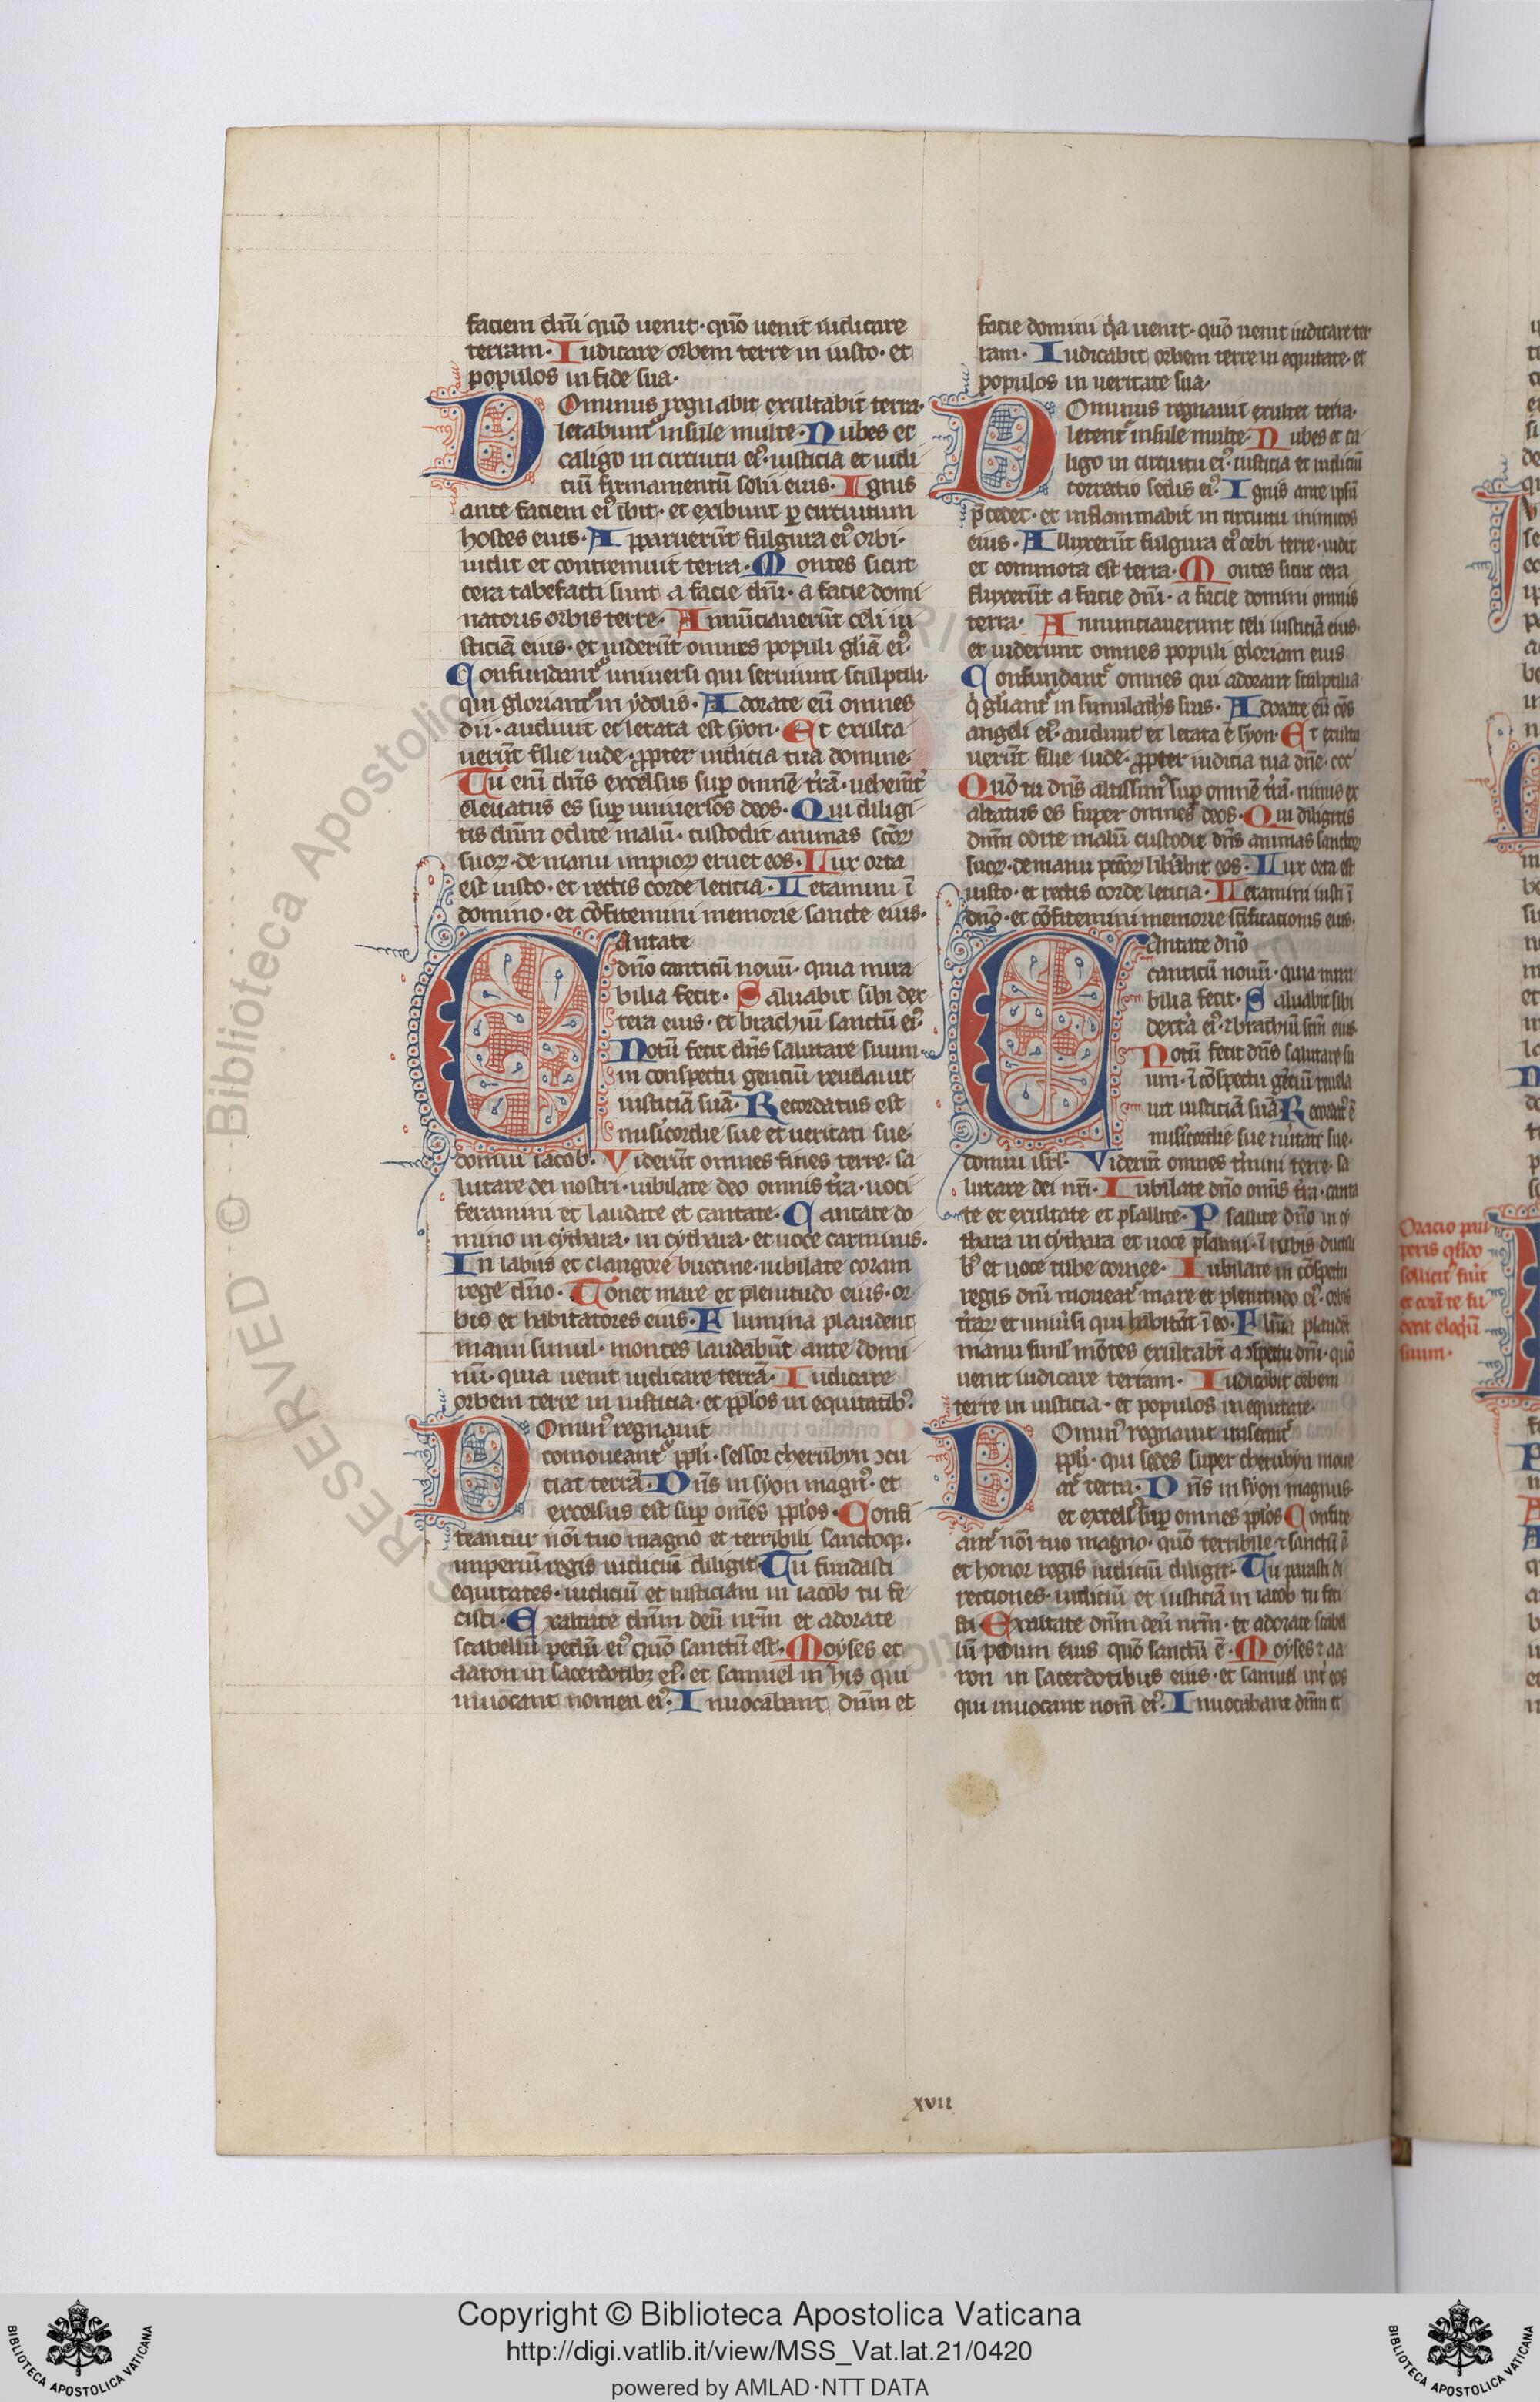 faciem dñi quō uenit· quō uenit iudicare
terram· Iudicare orbem terre in iusto· et
populos in fide sua·
Dominus regnabit exultabit terra·
letabunt᷑ insule multe· Nubes et
caligo in circuitu eiꝰ· iusticia et iudi
ciū firmamentū solii eius· Ignis
ante faciem eiꝰ ibit· et exibunt ꝑ circuitum
hostes eius· Apparuerūt fulgura eiꝰ orbi·
uidit et contremuit terra· Montes sicut
cera tabefacti sunt a facie dñi· a facie domi
natoris orbis terre· Annūciauerūt celi iu
sticiā eius· et uiderūt omnes populi gl̄iā eiꝰ·
Confundant᷑ uniuersi qui seruiunt sculptili·
qui gloriant᷑ in ydolis· Adorate eū omnes
dii· audiuit et letata est syon· Et exulta
uerūt filie iude· ꝓpter iudicia tua domine·
Tu eni᷑ dñs excelsus suꝑ omnē t̄rā· uehem̄t᷑
eleuatus es suꝑ uniuersos deos· Qui diligi
tis dñm odite malū· custodit animas sc̄oꝝ
suoꝝ· de manu impioꝝ eruet eos· Lux orta
est iusto· et rectis corde leticia· Letamini ī
domino· et cōfitemini memorie sancte eius·
Cantate
dño canticū nouū· quia mira
bilia fecit· Saluabit sibi dex
tera eius· et brachiū sanctū eiꝰ·
Notū fecit dñs salutare suum·
in conspectu genciū reuelauit
iusticiā suā· Recordatus est
mis̄icordie sue et ueritati sue·
domui iacob· Viderūt omnes fines terre· sa
lutare dei nostri· iubilate deo omnis t̄ra· uoci
feramini et laudate et cantate· Cantate do
mino in cythara· in cythara· et uoce carminis·
In labiis et clangore buccine· iubilate coram
rege dño· Tonet mare et plenitudo eius· or
bis et habitatores eius· Flumina plaudent
manu simul· montes laudabūt ante domi
nū· quia uenit iudicare terrā· Iudicare
orbem terre in iusticia· et ppl̄os in equitatibꝰ·
Dominꝰ regnauit
comoueant᷑ ppl̄i· sessor cherubyn ↄcu
ciat terrā· Dñs in syon magnꝰ· et
excelsus est suꝑ om̄es ppl̄os· Confi
teantur nōi tuo magno et terribili sanctoqꝫ·
imperiū regis iudiciū diligit· Tu fundasti
equitates· iudiciū et iusticiam in iacob tu fe
cisti· Exaltate dñm deū nr̄m et adorate
scabellū pedū eiꝰ quō sanctū est· Moyses et
aaron in sacerdotibꝫ eiꝰ· et samuel in his qui
inuocant nomen eiꝰ· Inuocabant dñm et
facie domini q̄a uenit· quō uenit iudicare ter
ram· Iudicabit orbem terre in equitate· et
populos in ueritate sua·
Dominus regnauit exultet terra·
letent᷑ insule multe· Nubes et ca
ligo in circuitu eiꝰ· iusticia et iudiciū
correctio sedis eiꝰ· Ignis ante ipsū
p̄cedet· et inflammabit in circuitu inimicos
eius· Alluxerūt fulgura eiꝰ orbi terre· uidit
et commota est terra· Montes sicut cera
fluxerūt a facie dñi· a facie domini omnis
terra· Annunciauerunt celi iusticiā eius·
et uiderunt omnes populi gloriam eius
Confundant᷑ omnes qui adorant sculptilia·
q̄ gl̄iant᷑ in simulach̄s suis· Adorate eū om̄s
angeli eiꝰ· audiuit et letata ē syon· Et exulta
uerūt filie iude· ꝓpter iudicia tua dñe·
Quō tu dñs altissimꝰ suꝑ omnē t̄rā· nimis ex
altatus es super omnes deos· Qui diligitis
dñm odite malū custodit dñs animas sanctoꝝ
suoꝝ· de manu pc̄coꝝ lib̄abit eos· Lux orta est
iusto· et rectis corde leticia· Letamini iusti ī
dño· et cōfitemini memorie sc̄ificationis eius·
Cantate dño
canticū nouū· quia mira
bilia fecit· Saluabit sibi
dext̄a eiꝰ· ⁊ brachiū sc̄m eius·
Notū fecit dñs salutare su
um· ī cōspectu gēciū reuela
uit iusticiā suā Recordatꝰ ē
mis̄icordie sue ⁊ u̓itati sue·
domui isr̄l· Viderūt omnes t̄mini terre· sa
lutare dei nr̄i· Iubilate dño om̄is t̄ra· canta
te et exultate et psallite· Psallite dño in cy
thara in cythara et uoce psalmi· ī tubis ductili
bꝰ et uoce tube cornee· Iubilate in cōspectu
regis dñi moueat᷑ mare et plenitudo eiꝰ· orbis
t̄raꝝ et uniu̓si qui habitāt ī eo· Flūīa plaudēt
manu simꝉ mōtes exultabūt a ↄspectu dñi· quō
uenit iudicare terram· Iudicabit orbem
terre in iusticia· et populos in equitate·
Dominꝰ regnauit irascant᷑
ppl̄i· qui sedes super cherubyn moue
at᷑ terra· Dñs in syon magnus·
et excelsꝰ suꝑ omnes ppl̄os Confite
ant᷑ nōi tuo magno· quō terribile ⁊ sanctū ē
et honor regis iudiciū diligit· Tu parasti di
rectiones· iudiciū et iusticiā in iacob tu feci
sti· Exaltate dñm deū nr̄m· et adorate scabel
lū pedum eius quō sanctū ē· Moyses ⁊ aa
ron in sacerdotibus eius· et samuel int̄ eos
qui inuocant nom̄ eiꝰ· Inuocabant dñm et
xvii
Oracio pau
peris
sollicitꝰ fūit
et corā te fu
dent eloqū
suum·
RESERVED © Biblioteca Apostolica
Copyright © Biblioteca Apostolica Vaticana
http://digi.vatlib.it/view/MSS_Vat.lat.21/0420
powered by AMLAD·NTT DATA
BIBLIOTECA APOSTOLICA VATICANA
BIBLIOTECA APOSTOLICA VATICANA